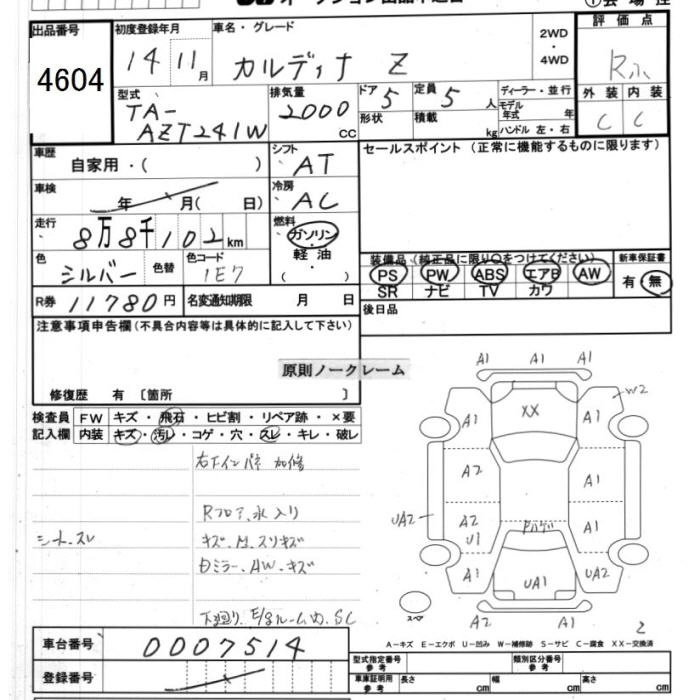 出品番号
4604
初度登録年月
14 11月
車名・グレード
カルディナ Z
2WD
・
4WD
評価点
Rふ
外装 内装
C C
型式
TA-
AZT241W
排気量
2000
cc
ドア 5
定員 5 人
形状
積載 kg
ディーラー・並行
モデル年式 年
ハンドル 左・右
車歴
自家用・( )
シフト
AT
セールスポイント (正常に機能するものに限ります)
車検
年 月( 日)
冷房
AC
走行
8万8千102km
燃料
ガソリン・
軽油・
( )
色
シルバー
色替
色コード
1E7
装備品 (純正品に限り○をつけてください)
PS PW ABS エアB AW
SR ナビ TV カワ
新車保証書
有・無
R券 11780円
名変通知期限 月 日
後日品
注意事項申告欄(不具合内容等は具体的に記入して下さい)
原則ノークレーム
修復歴 有 〔箇所 〕
検査員
記入欄
FW キズ・飛石・ヒビ割・リペア跡・×要
内装 キズ・汚レ・コゲ・穴・スレ・キレ・破レ
右下インパネ 加修
Rフロア、水入り
シート、スレ
キズ、
ミラー、AW、キズ
下廻り、E/gルーム内、SC
A1 A1 A1
W2
A1 XX A1
A2 A1
UA2
A2
U1
A1
A1 UA1 UA2
スペア
A2 A1
2
A-キズ E-エクボ U-凹み W-補修跡 S-サビ C-腐食 XX-交換済
車台番号
0007514
登録番号
型式指定番号
参考
類別区分番号
参考
車庫証明用
参考
長さ cm
幅 cm
高さ cm